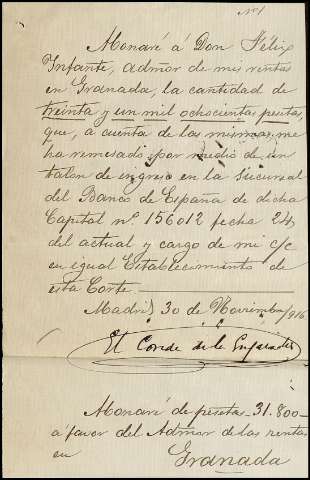 Nº 1
Monaré á Don Félix
Infante, admor de mis rentas
en Granada, la cantidad de
treinta y un mil ochocientas pesetas,
que, á cuenta de las mismas, me
ha remesado por medio de un
talon de ingreso en la Sucursal
del Banco de España de dicha
Capital nº 156012 fecha 24
del actual y cargo de mi c/c
en igual Establecimiento de
esta Corte.
Madrid 30 de Noviembre/916
El Conde de la
Monaré de pesetas - 31.800 -
á favor del Admor de las rentas
en Granada